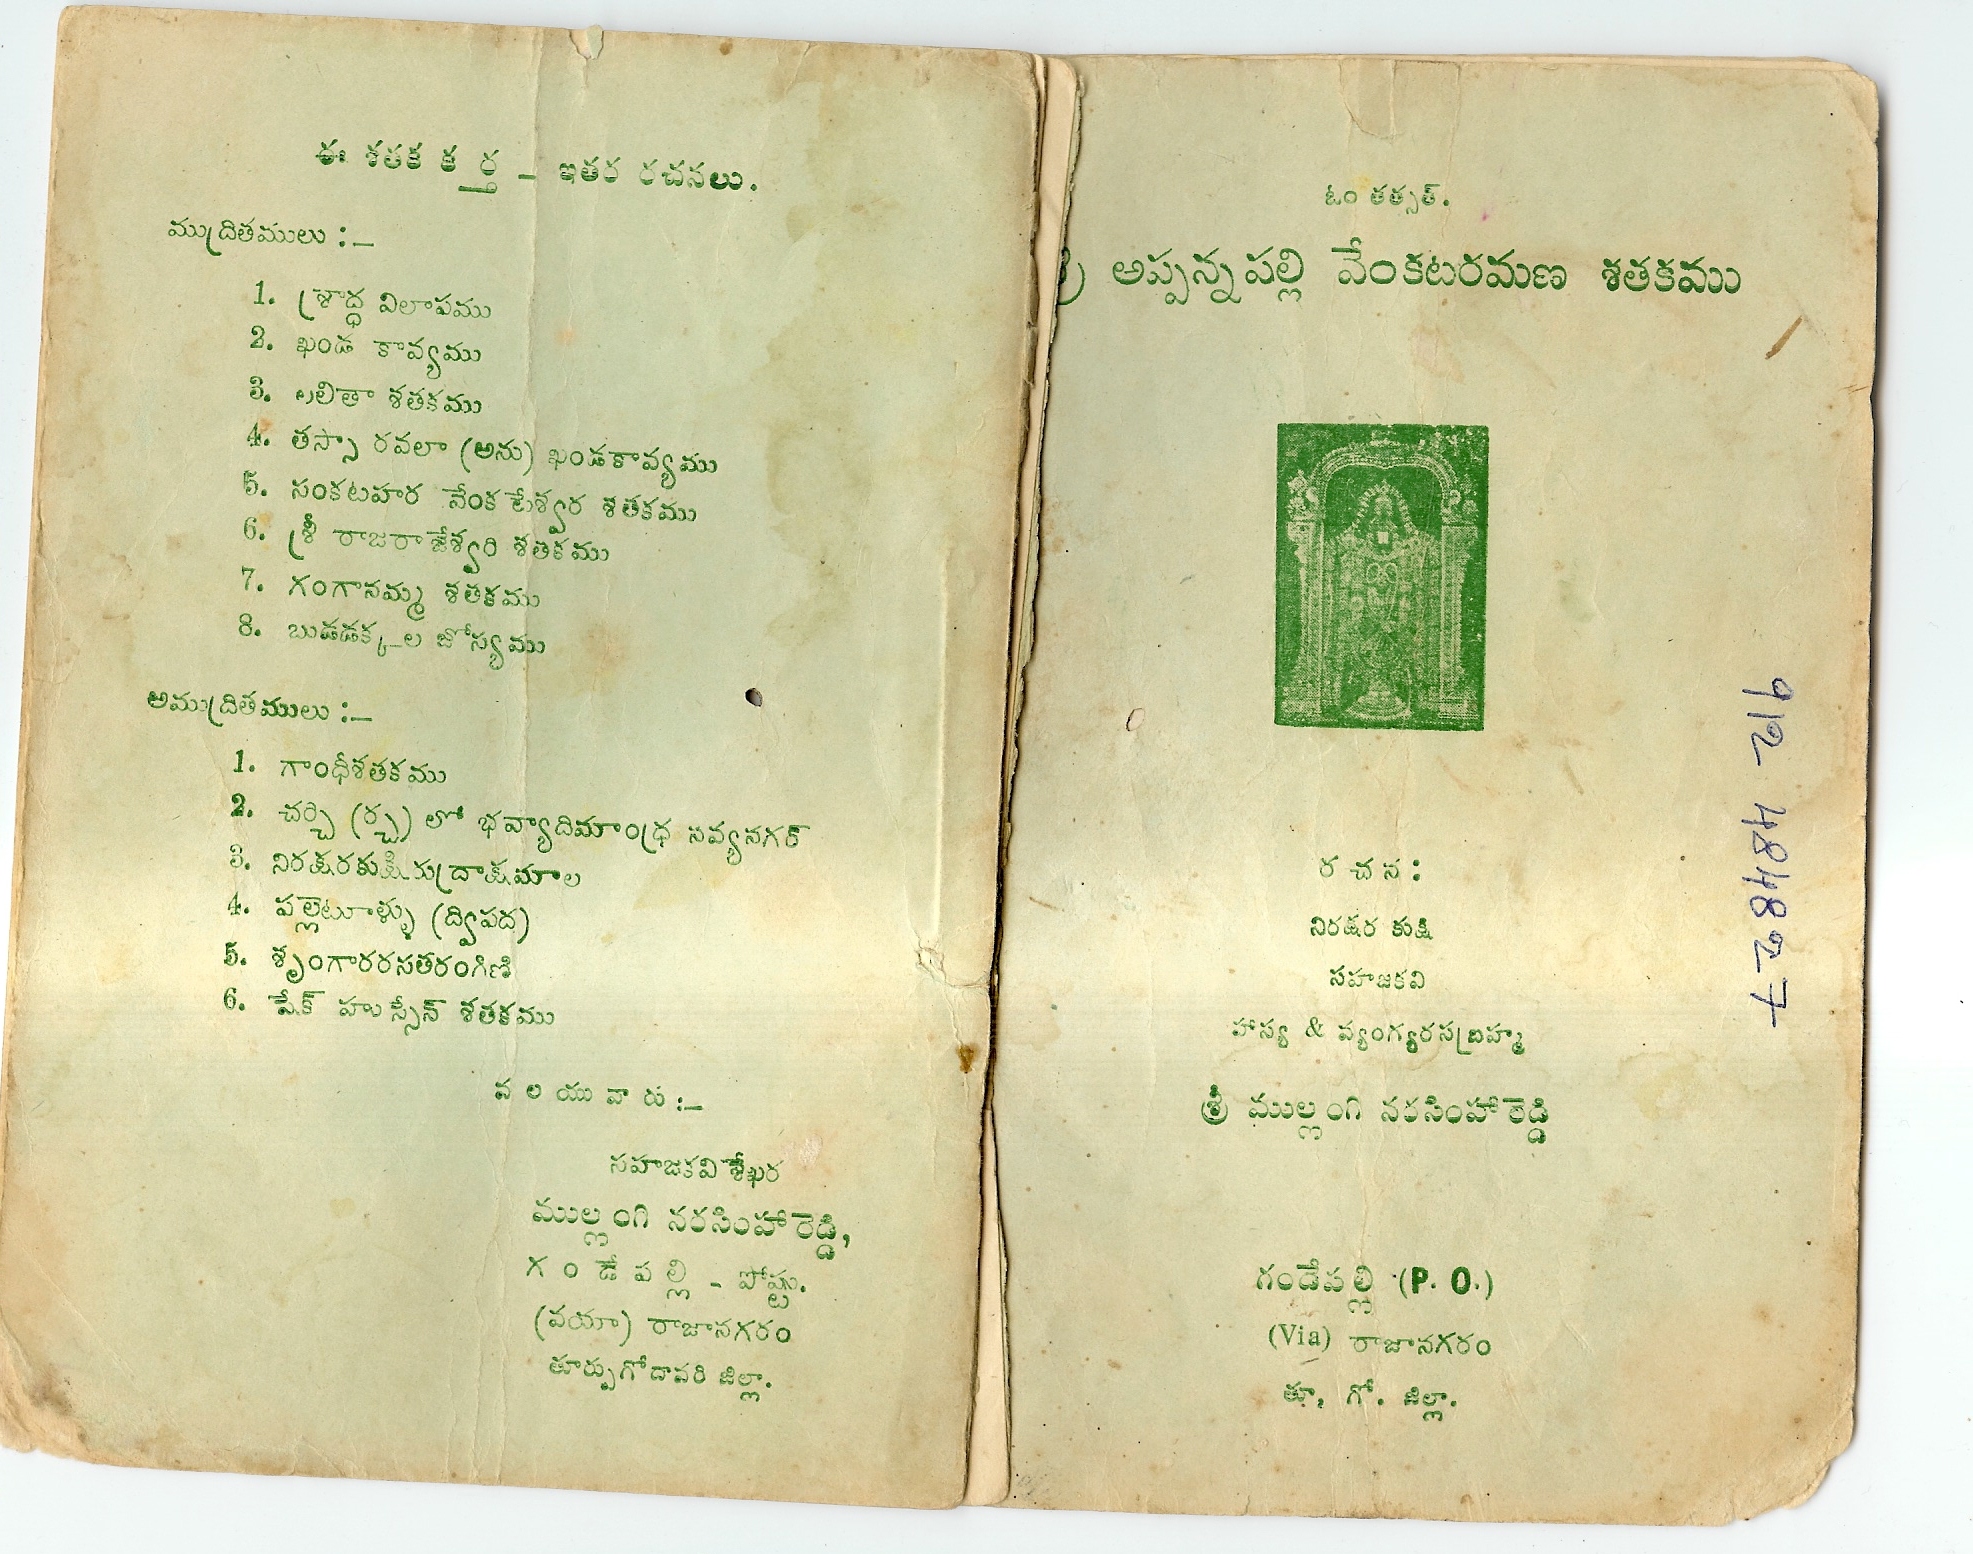 ఈ శతక కర్త - ఇతర రచనలు.
ముద్రితములు :-
1. శ్రాద్ధ విలాపము
2. ఖండ కావ్యము
3. లలితా శతకము
4. తస్సా రవలా (అను) ఖండకావ్యము
5. సంకటహర వేంకటేశ్వర శతకము
6. శ్రీ రాజరాజేశ్వరి శతకము
7. గంగానమ్మ శతకము
8. బుడడక్కల జోస్యము
అముద్రితములు :-
1. గాంధీశతకము
2. చర్చి (ర్చ) లో భవ్యాదిమాంధ్ర నవ్యనగర్
3. నిరక్షరకుక్షిరుద్రాక్షమాల
4. పల్లెటూళ్ళు (ద్విపద)
5. శృంగారరసతరంగిణి
6. షేక్ హుస్సేన్ శతకము
వలయువారు :-
సహజకవి శేఖర
ముల్లంగి నరసింహారెడ్డి,
గండేపల్లి - పోష్టు.
(వయా) రాజానగరం
తూర్పుగోదావరి జిల్లా.
ఓం తత్సత్.
శ్రీ అప్పన్నపల్లి వేంకటరమణ శతకము
రచన :
నిరక్షర కుక్షి
సహజకవి
హాస్య & వ్యంగ్యరసబ్రహ్మ
శ్రీ ముల్లంగి నరసింహారెడ్డి
గండేపల్లి (P. O.)
(Via) రాజానగరం
తూ, గో. జిల్లా.
912 484827